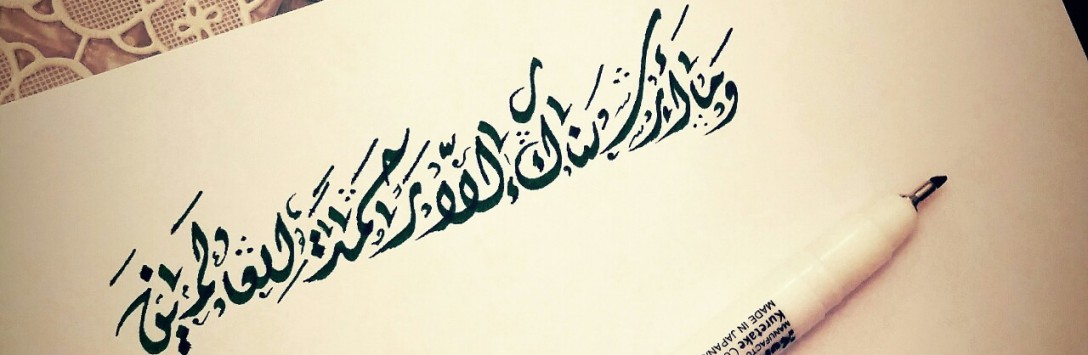 وَمَا أَرْسَلْنَاكَ إِلَّا رَحْمَةً لِلْعَالَمِينَ
MANUFACT
Kuretake Co
MADE IN JAPAN